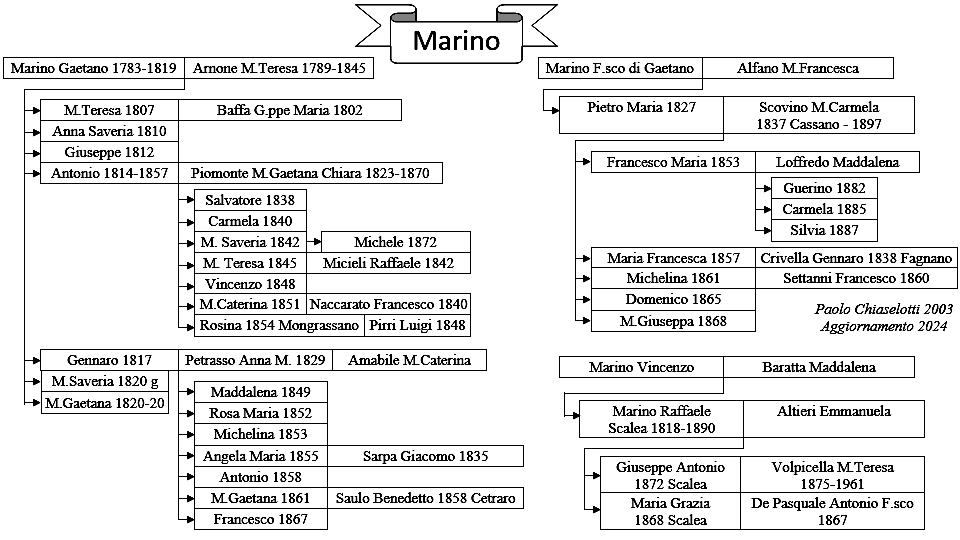 Marino
Marino Gaetano 1783-1819 Arnone M.Teresa 1789-1845
M.Teresa 1807 Baffa G.ppe Maria 1802
Anna Saveria 1810
Giuseppe 1812
Antonio 1814-1857 Piomonte M.Gaetana Chiara 1823-1870
Salvatore 1838
Carmela 1840
M. Saveria 1842 Michele 1872
M. Teresa 1845 Micieli Raffaele 1842
Vincenzo 1848
M.Caterina 1851 Naccarato Francesco 1840
Rosina 1854 Mongrassano Pirri Luigi 1848
Gennaro 1817 Petrasso Anna M. 1829 Amabile M.Caterina
M.Saveria 1820 g
M.Gaetana 1820-20
Maddalena 1849
Rosa Maria 1852
Michelina 1853
Angela Maria 1855 Sarpa Giacomo 1835
Antonio 1858
M.Gaetana 1861 Saulo Benedetto 1858 Cetraro
Francesco 1867
Marino F.sco di Gaetano Alfano M.Francesca
Pietro Maria 1827 Scovino M.Carmela
1837 Cassano - 1897
Francesco Maria 1853 Loffredo Maddalena
Guerino 1882
Carmela 1885
Silvia 1887
Maria Francesca 1857 Crivella Gennaro 1838 Fagnano
Michelina 1861 Settanni Francesco 1860
Domenico 1865
M.Giuseppa 1868
Paolo Chiaselotti 2003
Aggiornamento 2024
Marino Vincenzo Baratta Maddalena
Marino Raffaele Altieri Emmanuela
Scalea 1818-1890
Giuseppe Antonio Volpicella M.Teresa
1872 Scalea 1875-1961
Maria Grazia De Pasquale Antonio F.sco
1868 Scalea 1867